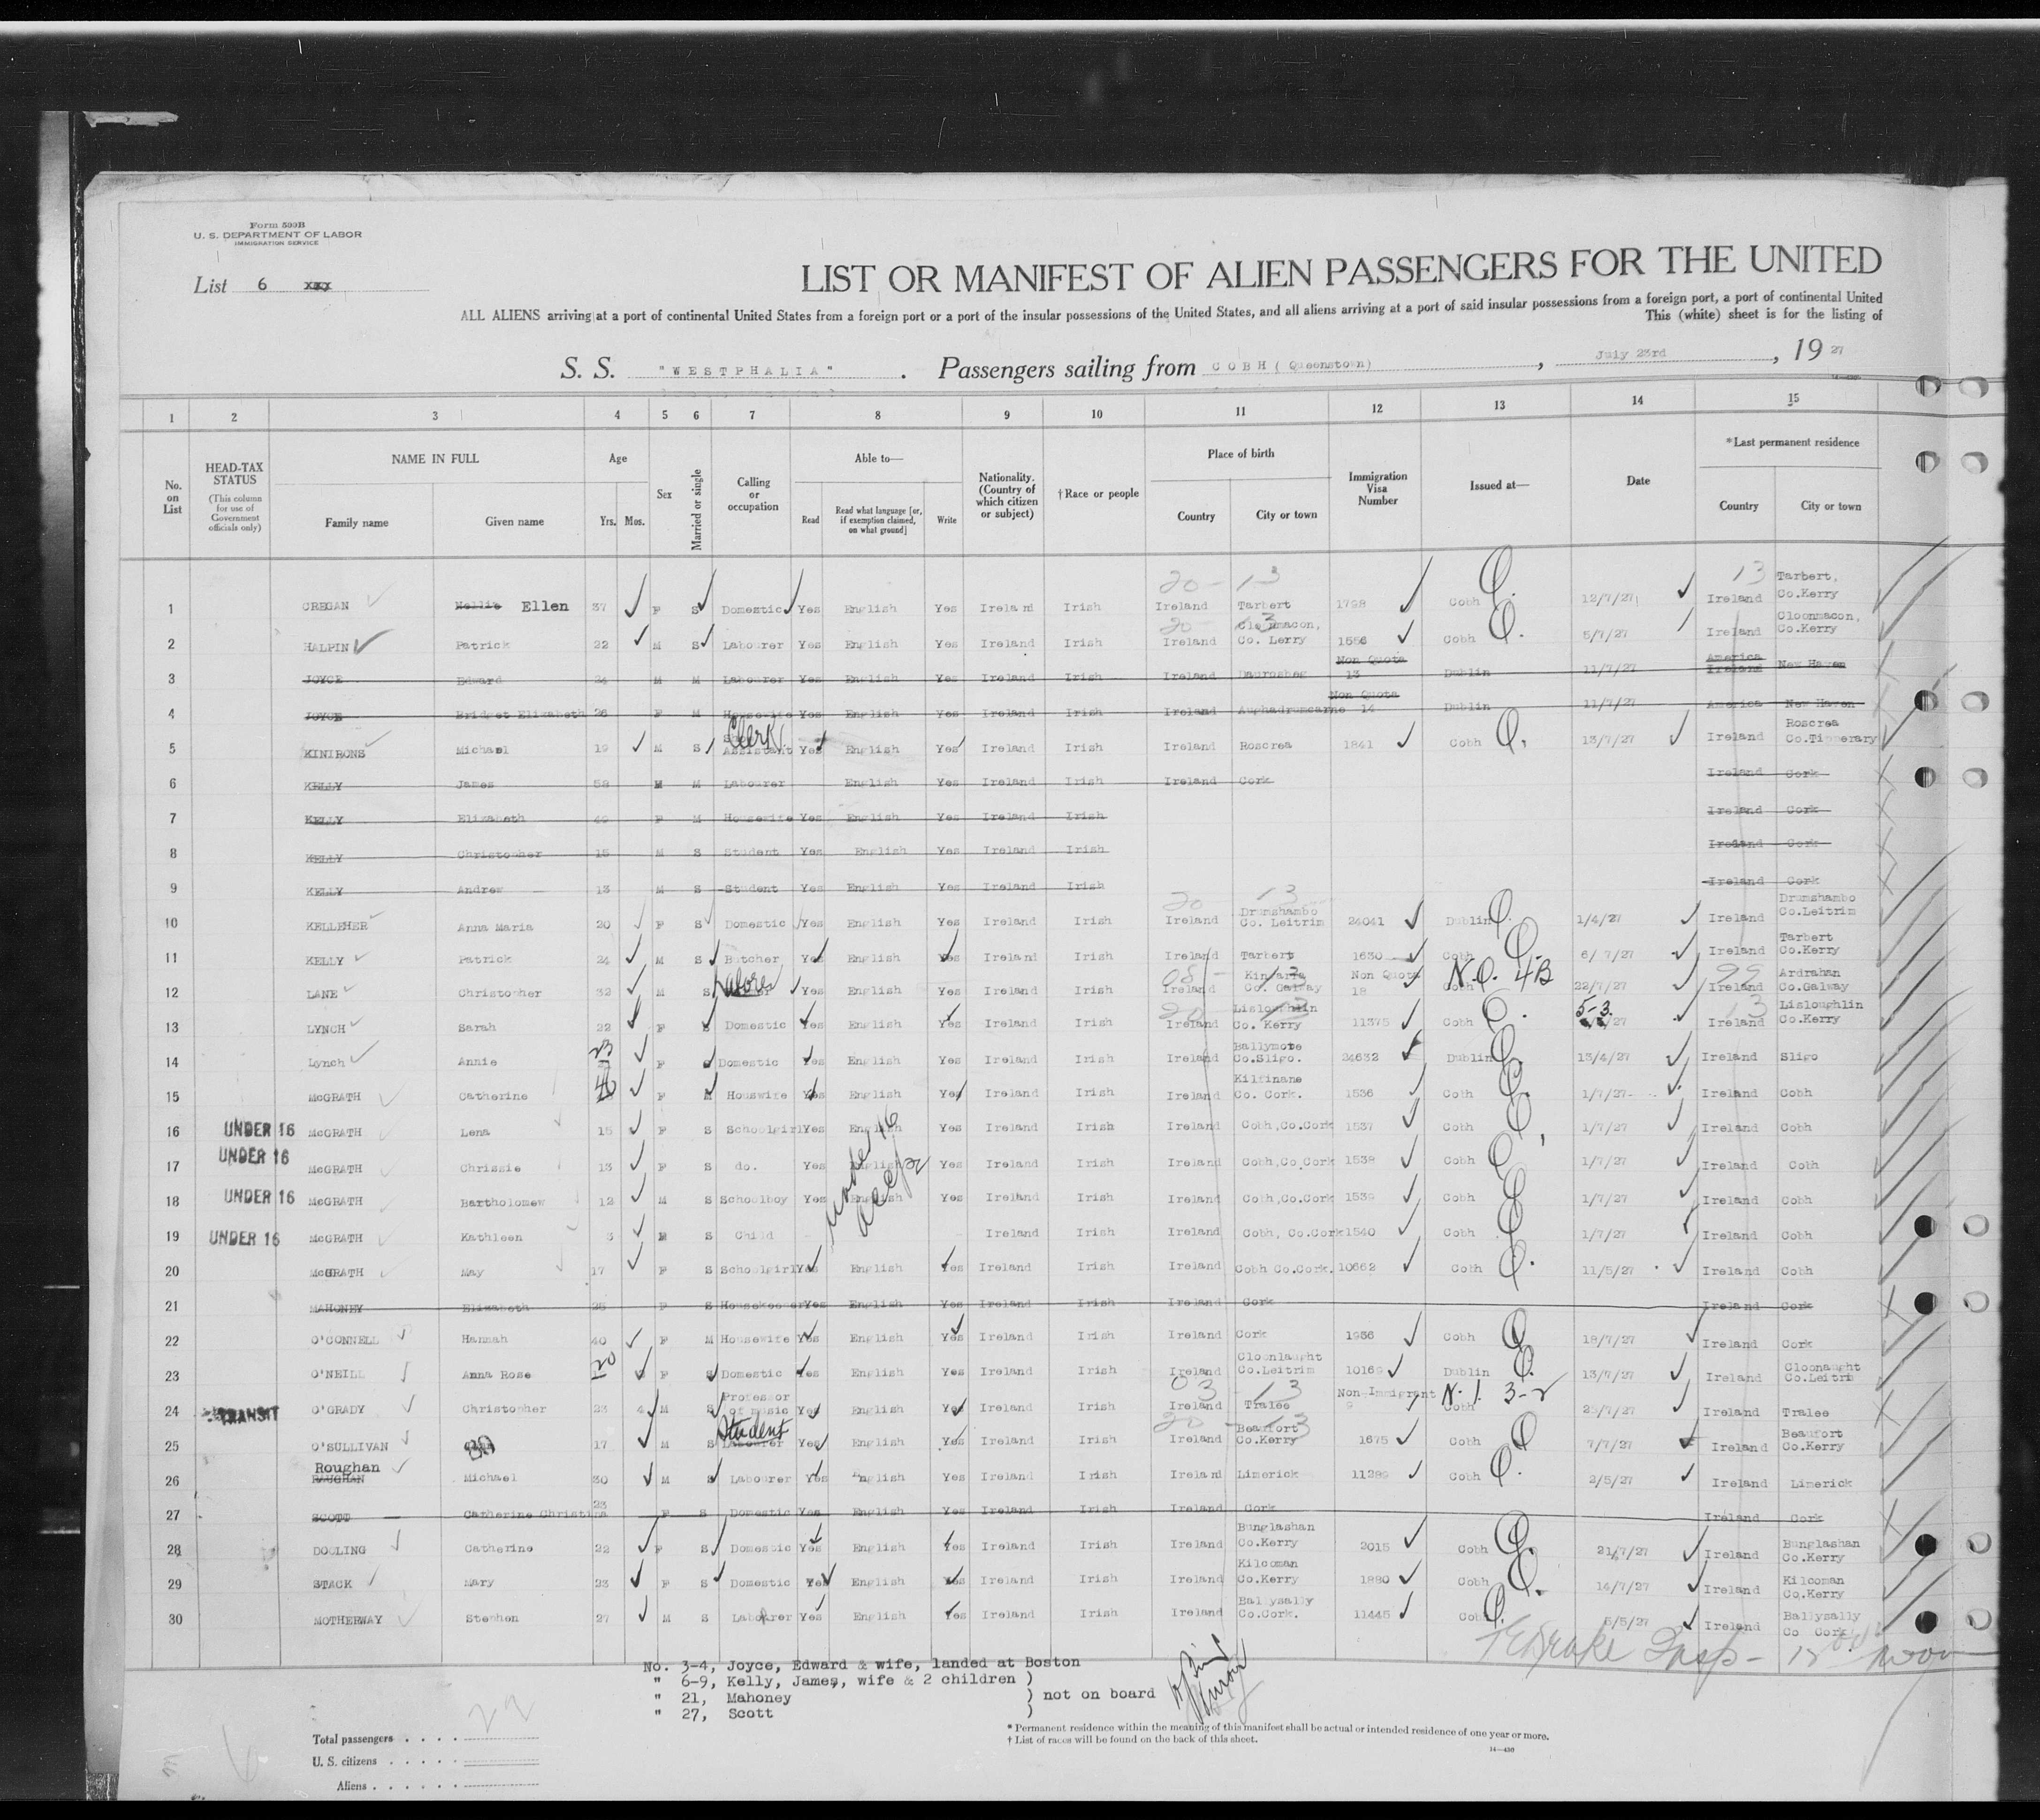 Form 599B
U. S. DEPARTMENT OF LABOR
IMMIGRATION SERVICE
List 6 xxx
LIST OR MANIFEST OF ALIEN PASSENGERS FOR THE UNITED
ALL ALIENS arriving at a port of continental United States from a foreign port or a port of the insular possessions of the United States, and all aliens arriving at a port of said insular possessions from a foreign port, a port of continental United
This (white) sheet is for the listing of
S. S. "WESTPHALIA". Passengers sailing from COBH (Queenstown), July 23rd, 19 27
1 2 3 4 5 6 7 8 9 10 11 12 13 14 15
No. on List
HEAD-TAX STATUS (This column for use of Government officials only)
NAME IN FULL Family name Given name
Age Yrs. Mos.
Sex
Married or single
Calling or occupation
Able to— Read Read what language [or, if exemption claimed, on what ground] Write
Nationality. (Country of which citizen or subject)
†Race or people
Place of birth Country City or town
Immigration Visa Number
Issued at—
Date
*Last permanent residence Country City or town
1 CREGAN Nellie Ellen 37 F S Domestic Yes English Yes Ireland Irish Ireland Tarbert 1798 Cobh 12/7/27 Ireland Tarbert, Co.Kerry
2 HALPIN Patrick 22 M S Labourer Yes English Yes Ireland Irish Ireland Cloonmacon, Co. Lerry 1556 Cobh 5/7/27 Ireland Cloonmacon, Co.Kerry
3 JOYCE Edward 24 M M Labourer Yes English Yes Ireland Irish Ireland Non Quota 13 Dublin 11/7/27 America Ireland New Haven
4 JOYCE Bridget Elizabeth 26 F M Housewife Yes English Yes Ireland Irish Ireland Non Quota 14 Dublin 11/7/27 America New Haven
5 KINIRONS Michael 19 M S Clerk Assistant Yes English Yes Ireland Irish Ireland Roscrea 1841 Cobh 13/7/27 Ireland Roscrea Co.Tipperary
6 KELLY James 58 M M Labourer English Yes Ireland Irish Ireland Cork Ireland Cork
7 KELLY Elizabeth F M Housewife Yes English Yes Ireland Irish Ireland Cork
8 KELLY Christopher 15 M S Student Yes English Yes Ireland Irish Ireland Cork
9 KELLY Andrew 13 M S Student Yes English Yes Ireland Irish Ireland Cork
10 KELLEHER Anna Maria 20 F S Domestic Yes English Yes Ireland Irish Ireland Drumshambo Co. Leitrim 24041 Dublin 1/4/27 Ireland Drumshambo Co.Leitrim
11 KELLY Patrick 24 M S Butcher Yes English Yes Ireland Irish Ireland Tarbert 1630 Cobh 6/7/27 Ireland Tarbert Co.Kerry
12 LANE Christopher 32 M S Yes English Yes Ireland Irish Ireland Co. Galway Non Quota 18 Cobh N.Q. 4B 22/7/27 Ireland Ardrahan Co.Galway
13 LYNCH Sarah 22 F S Domestic Yes English Yes Ireland Irish Ireland Lisloughlin Co. Kerry 11375 Cobh 5-3. /27 Ireland Lisloughlin Co.Kerry
14 Lynch Annie 23 F S Domestic Yes English Yes Ireland Irish Ireland Ballymote Co.Sligo. 24632 Dublin 13/4/27 Ireland Sligo
15 McGRATH Catherine F M Houswife Yes English Yes Ireland Irish Ireland Kilfinane Co. Cork. 1536 Cobh 1/7/27 Ireland Cobh
16 UNDER 16 McGRATH Lena 15 F S Schoolgirl Yes English Yes Ireland Irish Ireland Cobh,Co.Cork 1537 Cobh 1/7/27 Ireland Cobh
17 UNDER 16 McGRATH Chrissie 13 F S do. Yes English Yes Ireland Irish Ireland Cobh,Co.Cork 1538 Cobh 1/7/27 Ireland Cobh
18 UNDER 16 McGRATH Bartholomew 12 M S Schoolboy Yes English Yes Ireland Irish Ireland Cobh,Co.Cork 1539 Cobh 1/7/27 Ireland Cobh
under 16
19 UNDER 16 McGRATH Kathleen 3 S Child Ireland Irish Ireland Cobh, Co.Cork 1540 Cobh 1/7/27 Ireland Cobh
20 McGRATH May 17 F S Schoolgirl Yes English Yes Ireland Irish Ireland Cobh Co.Cork. 10662 Cobh 11/5/27 Ireland Cobh
21 MAHONEY Elizabeth 25 F S Housekeeper Yes English Yes Ireland Irish Ireland Cork Ireland Cork
22 O'CONNELL Hannah 40 F M Housewife Yes English Yes Ireland Irish Ireland Cork 1956 Cobh 18/7/27 Ireland Cork
23 O'NEILL Anna Rose 20 F S Domestic Yes English Yes Ireland Irish Ireland Cloonlaught Co.Leitrim 10169 Dublin 13/7/27 Ireland Cloonaught Co.Leitrim
24 TRANSIT O'GRADY Christopher 23 4 M S Professor of music Yes English Yes Ireland Irish Ireland Tralee Non-Immigrant 9 Cobh N.I. 3-2 /7/27 Ireland Tralee
25 O'SULLIVAN 17 M S Student Labourer Yes English Yes Ireland Irish Ireland Beaufort Co.Kerry 1675 Cobh 7/7/27 Ireland Beaufort Co.Kerry
26 Roughan RAUGHAN Michael 30 M S Labourer Yes English Yes Ireland Irish Ireland Limerick 11289 Cobh 2/5/27 Ireland Limerick
27 SCOTT Catherine Christina 23 F S Domestic Yes English Yes Ireland Irish Ireland Cork Ireland Cork
28 DOOLING Catherine 22 F S Domestic Yes English Yes Ireland Irish Ireland Bunglashan Co.Kerry 2015 Cobh 21/7/27 Ireland Bunglashan Co.Kerry
29 STACK Mary 23 F S Domestic Yes English Yes Ireland Irish Ireland Kilcoman Co.Kerry 1880 Cobh 14/7/27 Ireland Kilcoman Co.Kerry
30 MOTHERWAY Stephen 27 M S Labourer Yes English Yes Ireland Irish Ireland Ballysally Co.Cork. 11445 Cobh 5/5/27 Ireland Ballysally Co Cork
No. 3-4, Joyce, Edward & wife, landed at Boston
" 6-9, Kelly, James, wife & 2 children )
" 21, Mahoney ) not on board
" 27, Scott )
* Permanent residence within the meaning of this manifest shall be actual or intended residence of one year or more.
† List of races will be found on the back of this sheet.
14—430
Total passengers . . . . 22
U. S. citizens . . . . .
Aliens . . . . . .